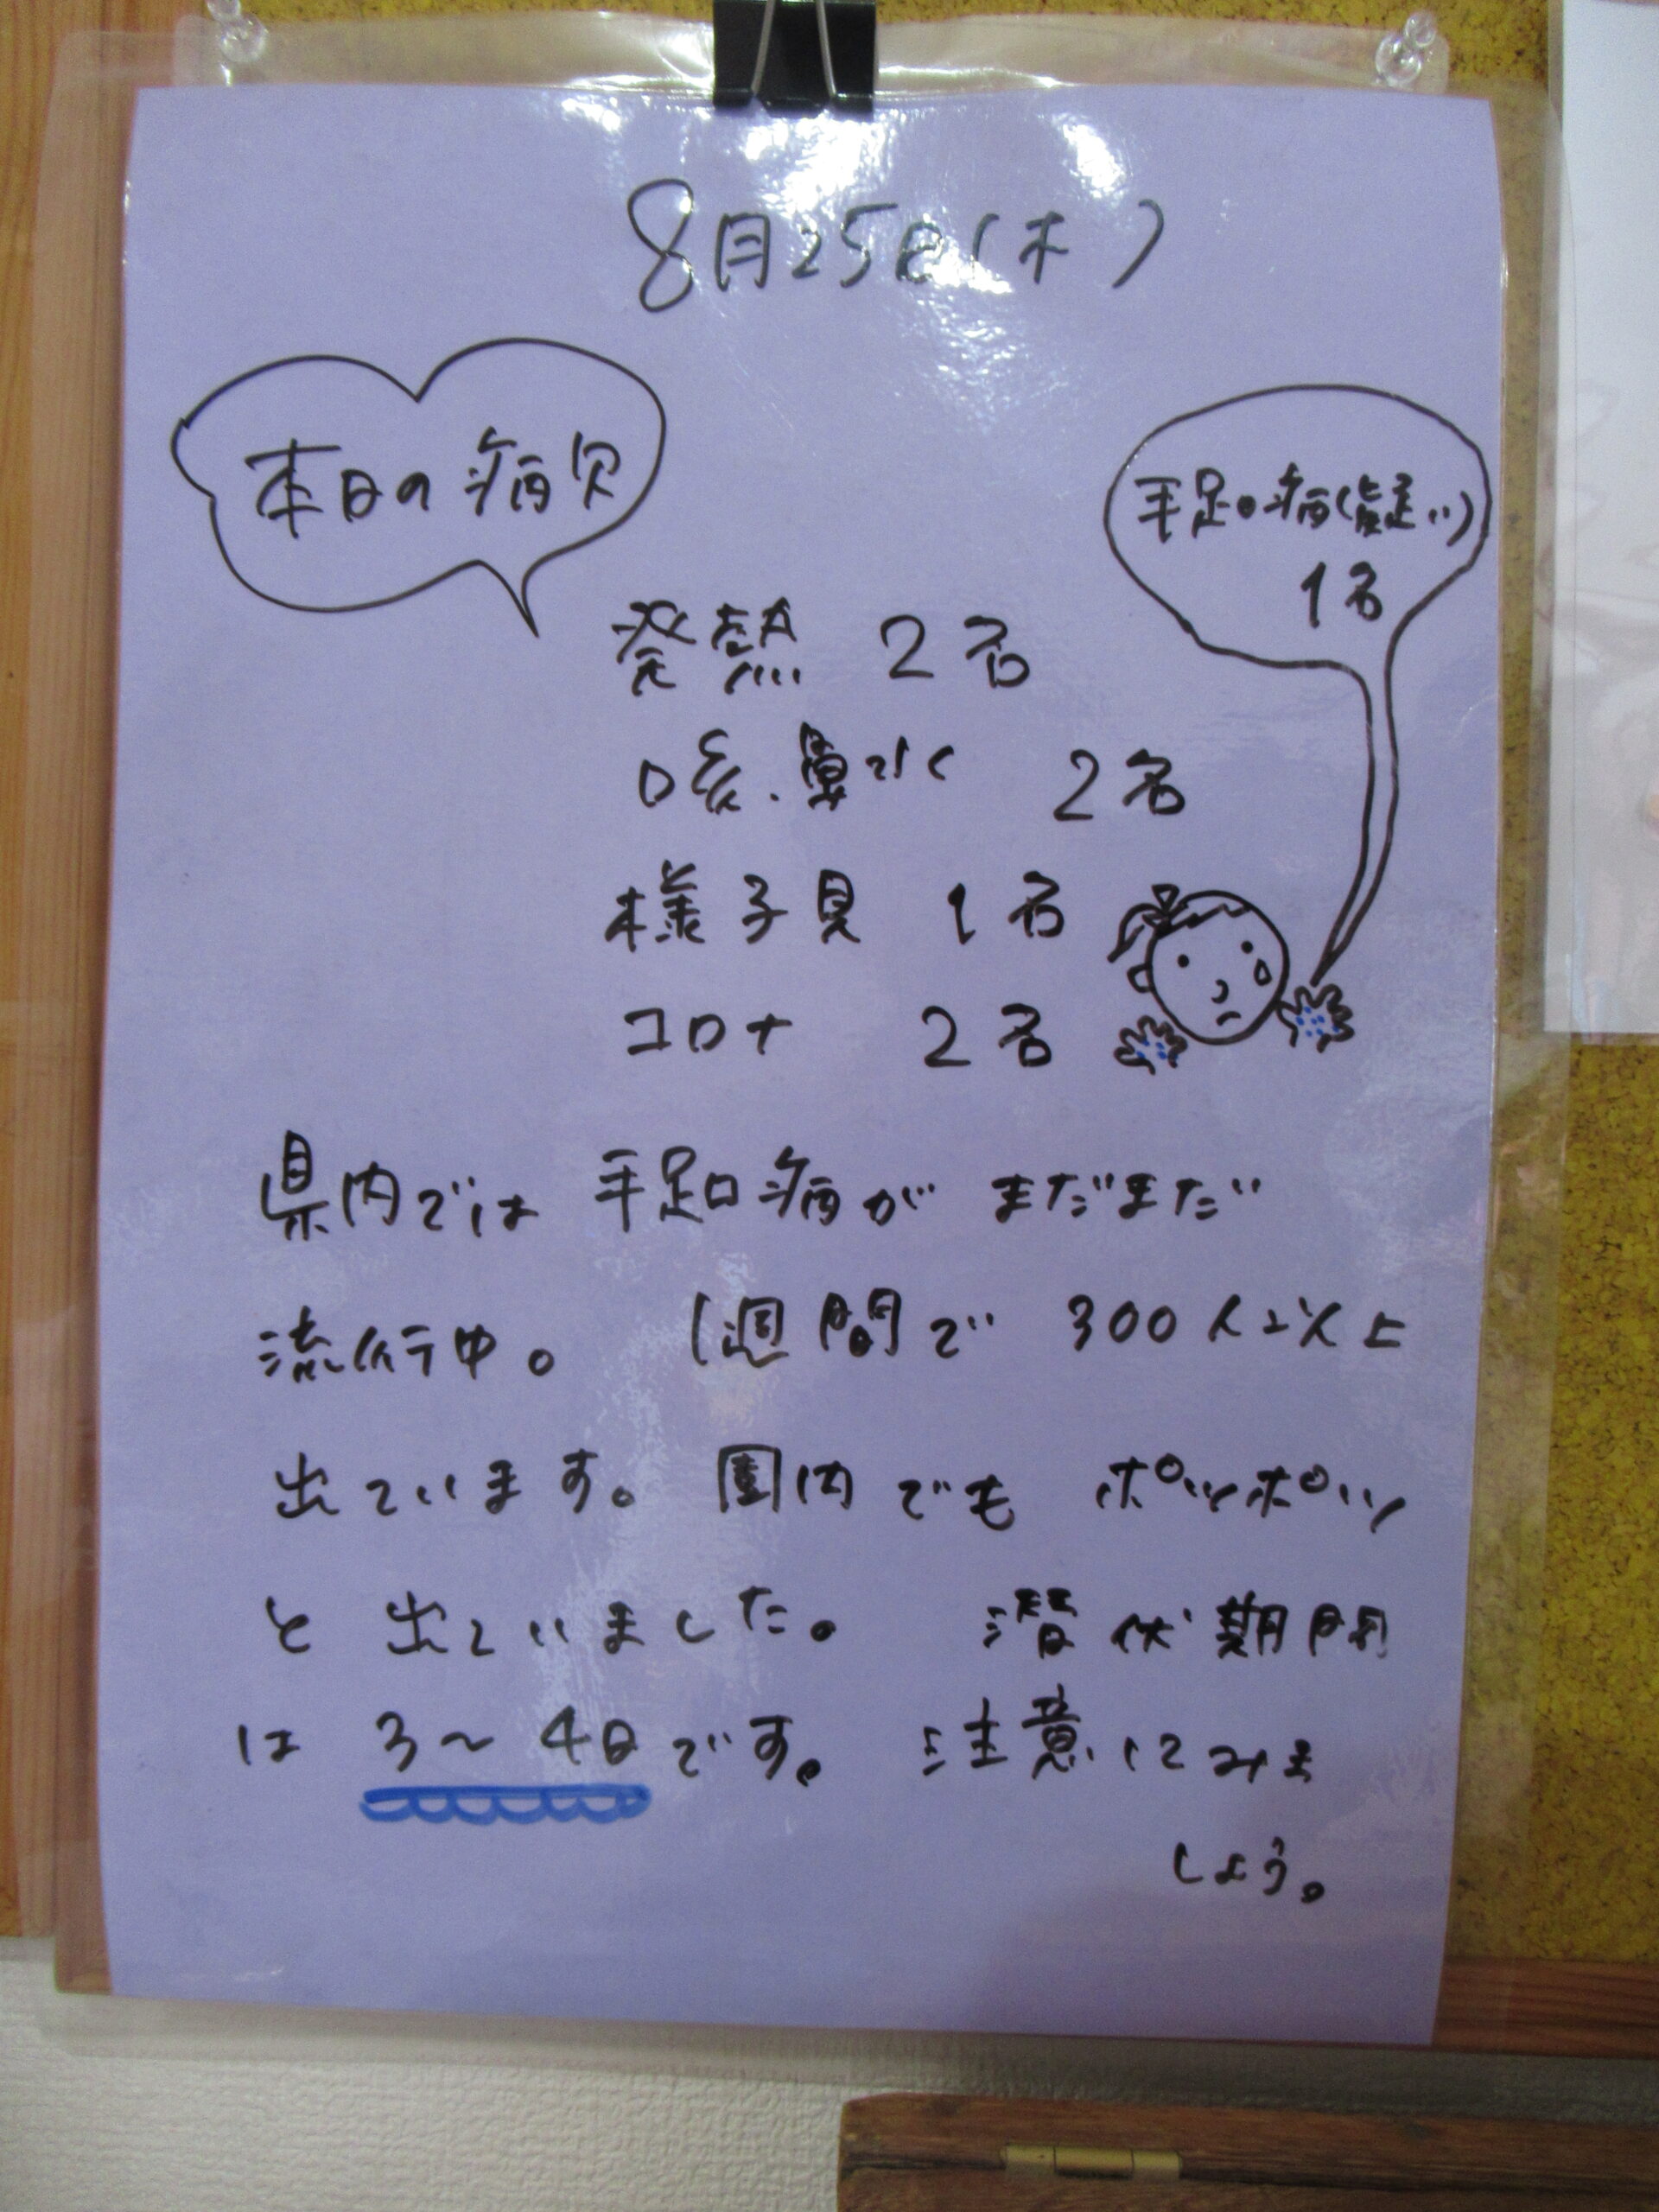 8月25日(木)
本日の病欠
手足口病(疑い)
1名
発熱 2名
咳.鼻水 2名
様子見 1名
コロナ 2名
県内では手足口病がまだまだ
流行中。 1週間で300人以上
出ています。園内でもポツポツ
と出ていました。 潜伏期間
は3〜4日です。 注意してみま
しょう。